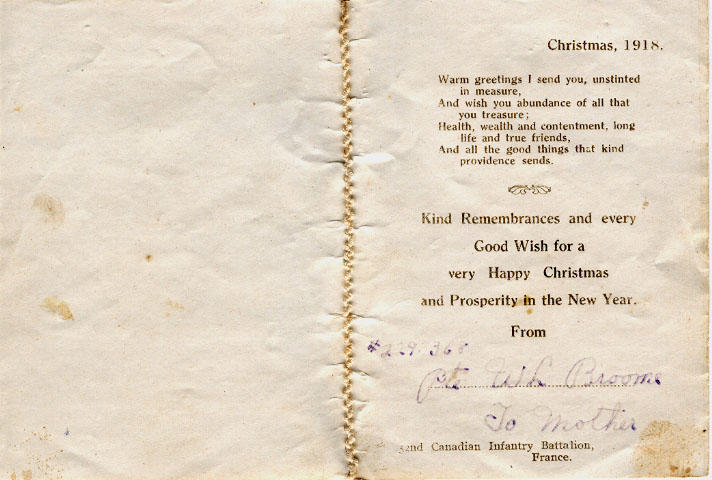 Christmas, 1918.
Warm greetings I send you, unstinted
in measure,
And wish you abundance of all that
you treasure;
Health, wealth and contentment, long
life and true friends,
And all the good things that kind
providence sends.
Kind Remembrances and every
Good Wish for a
very Happy Christmas
and Prosperity in the New Year.
From
#229368
Pte Broome
To Mother
52nd Canadian Infantry Battalion,
France.